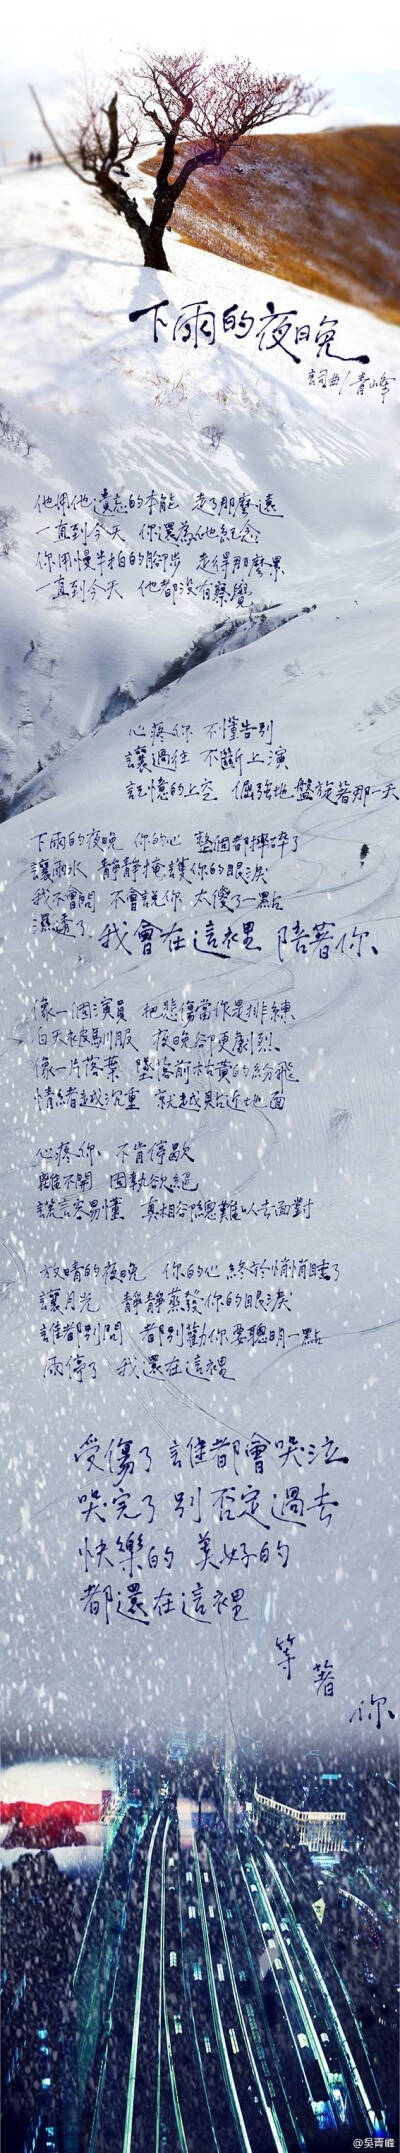 下雨的夜晚
詞曲/青峰
他用他遺忘的本能　走了那麼遠
一直到今天　你還為他紀念
你用慢半拍的腳步　走得那麼累
一直到今天　他都沒有察覺
心疼你　不懂告別
讓過往　不斷上演
記憶的上空　倔強地盤旋著那一天
下雨的夜晚　你的心　整個都摔碎了
讓雨水　靜靜掩護你的眼淚
我不會問　不會說你　太傻了一點
濕透了　我會在這裡　陪著你
像一個演員　把悲傷當作是排練
白天被馴服　夜晚卻更劇烈
像一片落葉　墜落前枯黃的紛飛
情緒越沉重　就越貼近地面
心疼你　不肯停歇
離不開　固執欲絕
謊言容易懂　真相卻總難以去面對
放晴的夜晚　你的心終於悄悄睡了
讓月光　靜靜蒸發你的眼淚
誰都別問　都別勸你要聰明一點
雨停了　我還在這裡
受傷了誰都會哭泣
哭完了別否定過去
快樂的　美好的
都還在這裡
等著你
@吳青峰